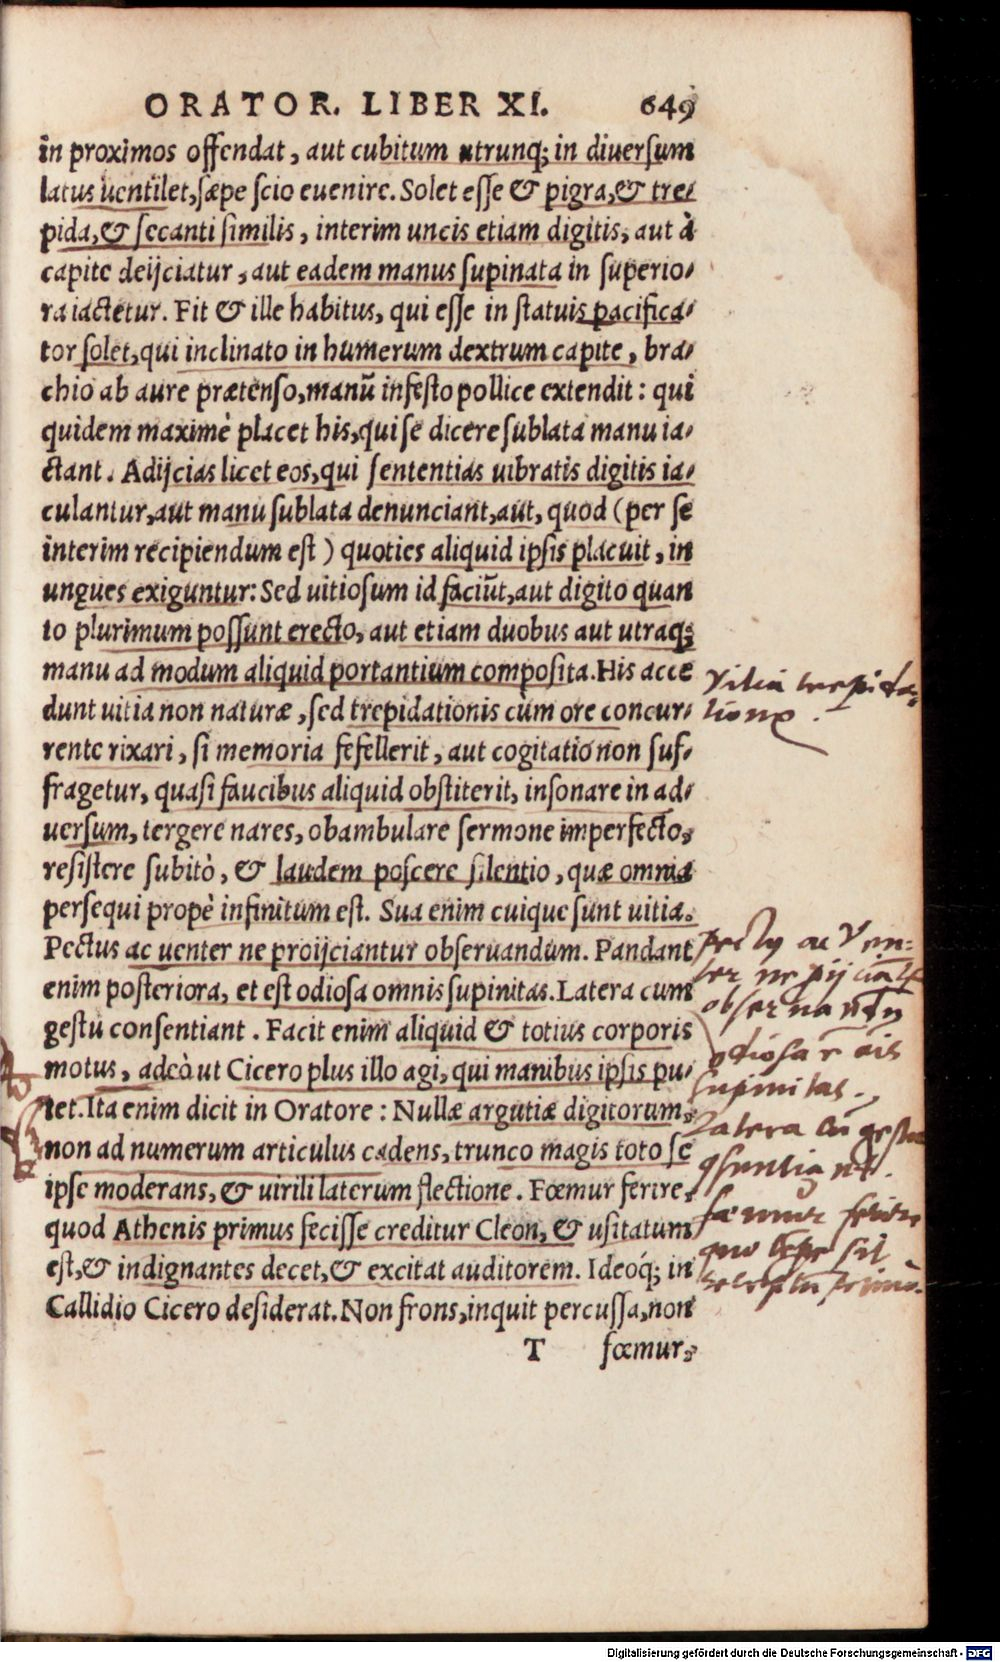 ORATOR. LIBER XI. 649
in proximos offendat, aut cubitum utrunq; in diuersum
latus uentilet, sæpe scio euenire. Solet esse & pigra, & tre-
pida, & secanti similis, interim uncis etiam digitis, aut à
capite deijciatur, aut eadem manus supinata in superio-
ra iactetur. Fit & ille habitus, qui esse in statuis pacifica-
tor solet, qui inclinato in humerum dextrum capite, bra-
chio ab aure prætenso, manũ infesto pollice extendit: qui
quidem maximè placet his, qui se dicere sublata manu ia-
ctant. Adijcias licet eos, qui sententias uibratis digitis ia-
culantur, aut manu sublata denunciant, aut, quod (per se
interim recipiendum est) quoties aliquid ipsis placuit, in
ungues exiguntur: Sed uitiosum id faciũt, aut digito quan
to plurimum possunt erecto, aut etiam duobus aut utraq;
manu ad modum aliquid portantium composita. His acce
dunt uitia non naturæ, sed trepidationis cùm ore concur-
rente rixari, si memoria fefellerit, aut cogitatio non suf-
fragetur, quasi faucibus aliquid obstiterit, insonare in ad-
uersum, tergere nares, obambulare sermone imperfecto,
resistere subitò, & laudem poscere silentio, quæ omnia
persequi propè infinitum est. Sua enim cuique sunt uitia.
Pectus ac uenter ne proijciantur obseruandum. Pandant
enim posteriora, et est odiosa omnis supinitas. Latera cum
gestu consentiant. Facit enim aliquid & totius corporis
motus, adeò ut Cicero plus illo agi, qui manibus ipsis pu-
tet. Ita enim dicit in Oratore: Nullæ argutiæ digitorum,
non ad numerum articulus cadens, trunco magis toto se
ipse moderans, & uirili laterum flectione. Fœmur ferire,
quod Athenis primus fecisse creditur Cleon, & usitatum
est, & indignantes decet, & excitat auditorem. Ideoq́; in
Callidio Cicero desiderat. Non frons, inquit percussa, non
T fœmur,
Vitia trepida-
tionis.
Pectus ac Ven-
ter ne
obseruandũ
odiosa
supinitas.
Latera cũ gestu
Fæmur ferire